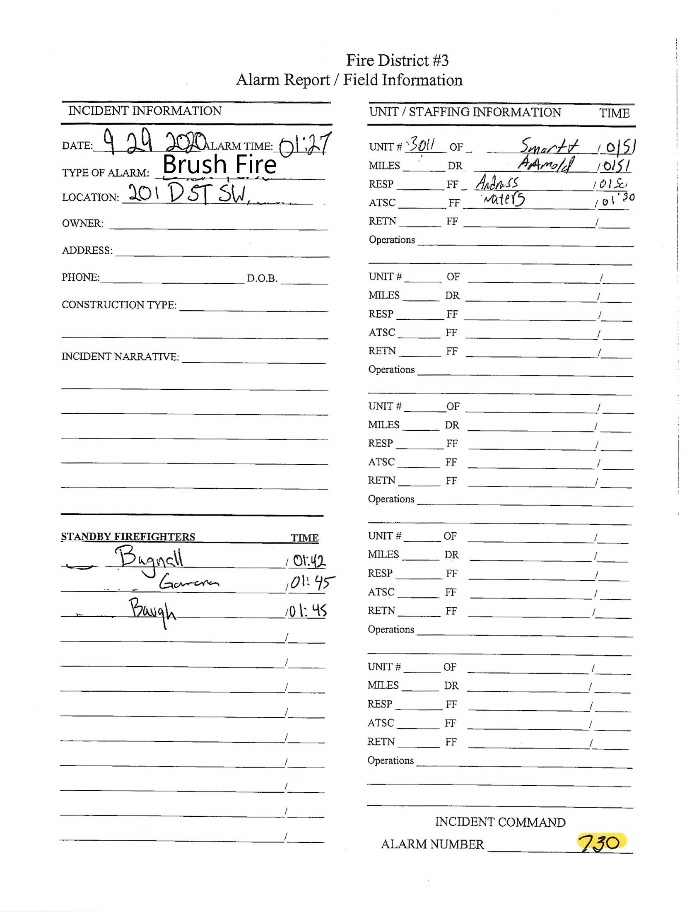 Fire District #3
Alarm Report / Field Information
INCIDENT INFORMATION
DATE: 9 29 2020 ALARM TIME: 01:27
TYPE OF ALARM: Brush Fire
LOCATION: 201 D ST SW,
OWNER:
ADDRESS:
PHONE: D.O.B.
CONSTRUCTION TYPE:
INCIDENT NARRATIVE:
STANDBY FIREFIGHTERS TIME
Bagnall / 01:42
/ 01:45
Baugh / 01:45
/
/
/
/
/
/
/
/
/
UNIT / STAFFING INFORMATION TIME
UNIT # 3011 OF Smartt / 0151
MILES DR AArnold / 0151
RESP FF Andress / 015
ATSC FF Waters / 01
RETN FF /
Operations
UNIT # OF /
MILES DR /
RESP FF /
ATSC FF /
RETN FF /
Operations
UNIT # OF /
MILES DR /
RESP FF /
ATSC FF /
RETN FF /
Operations
UNIT # OF /
MILES DR /
RESP FF /
ATSC FF /
RETN FF /
Operations
UNIT # OF /
MILES DR /
RESP FF /
ATSC FF /
RETN FF /
Operations
INCIDENT COMMAND
ALARM NUMBER 730